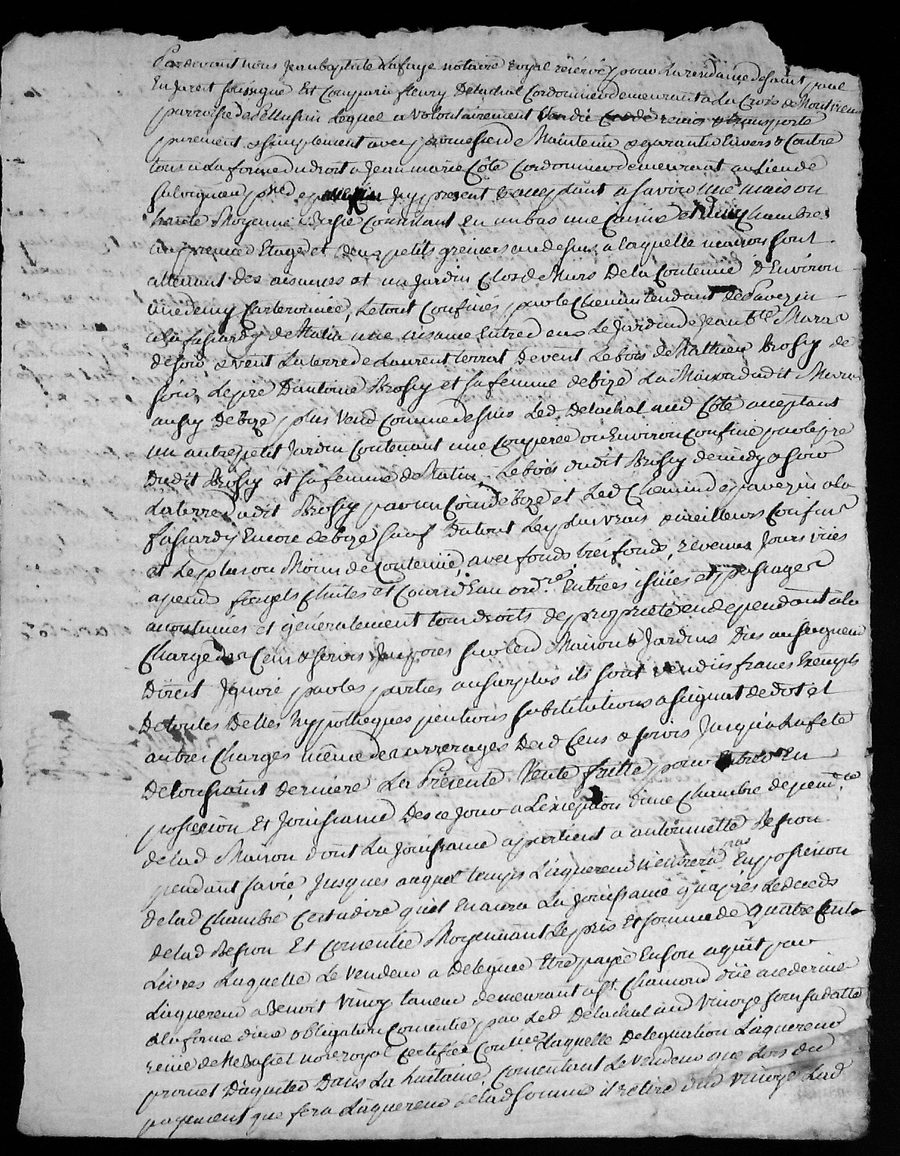 Pardevant nous Jean baptiste Lafaye notaire royal réservé pour La residance de saint paul
En Jarest soussigné Est comparu fleury Delachal Cordonnier demeurant a La Croix de Montvieux
parroisse de Pellussin Lequel a volontairement Vendu Cedé remis & transporté
purement & simplement avec promesse de Maintenir & garantir Envers & Contre
tous a La forme du droit a Jean marie Côte Cordonnier demeurant au Lieu de
Salvignau pnt Jcy present & acceptant a savoir une maison
haute Moyenne & Basse Consistant En un bas une Cuisine et Chambres
au premier Etage et deux petits greniers au dessus a laquelle maison sont
attenant des aisances et un Jardin Clos de Murs De la Contenue d'Environ
une demy Cartonnée, Le tout Confiné par le Chemin tendant de Pavezin
a La fayardy de Matin une aisance Entre deux Le Jardin de Jean bte Maras
de soir & vent La terre de Laurent terrat de vent Le bois de Mathieu Brossy de
soir, Le pré D'antoine Brossy et sa femme de bize La Maison dudit Maras
aussy de bize, plus Vend Comme dessus Led. Delachal aud Côte acceptant
un autre petit Jardin Contenant une Couperée ou Environ Confiné par le pré
Dudit Brossy et sa femme de Matin, Le bois dudit Brossy de midy & soir
La terre dudit Brossy par un Coin de bize et Led Chemin de pavezin a la
fayardy Encore de bize sauf Du tout Les plus vrais & meilleurs Confins
et Le plus ou Moins de Contenue, avec fonds très fonds, revenus Jours vues
apends fregets Chutes et Cours D'Eau ordres Entrées issües et passages
acoutumés et generalement tous droits de propriété en dependant a la
Charge des Cens & servis Jmposés sur Lesd Maison & Jardins Dus au seigneur
Direct Jgnoré par les parties au surplus ils sont vendus francs Exempts
De toutes Dettes hypotheques pensions substitutions assignat de dot et
autres Charges même des arrerages desd Cens & servis Jusqu'a La fete
De toussaint derniere La Présente Vente faitte pour Entrer En
possession Et Jouissance Des ce jour a L'exception d'une Chambre depend.te
de lad Maison dont La Jouissance appartient a antoinette Besson
pendant sa vie Jusques auquel temps L'aquereur n'entrera pas En possession
de lad Chambre C'est adire qu'il En aura La Jouissance qu'après Le decès
de lad Besson Et Consentie Moyennant Le prix Et somme de quatre Cents
Livres Laquelle Le Vendeur a deleguée Etre payée En son aquit par
L'aquereur a Benoit Vinoy taneur demeurant a St Chamond düe a ce dernier
a la forme d'une obligation Consentie par Led. Delachal aud Vinoy sous sa datte
reçüe de Me notre royal Certifiée Laquelle Delegation L'aquereur
promet D'aquitter Dans La huitaine, Consentant Le Vendeur que Lors du
payement que fera L'aquereur de lad somme il retire dud Vinoy Lad